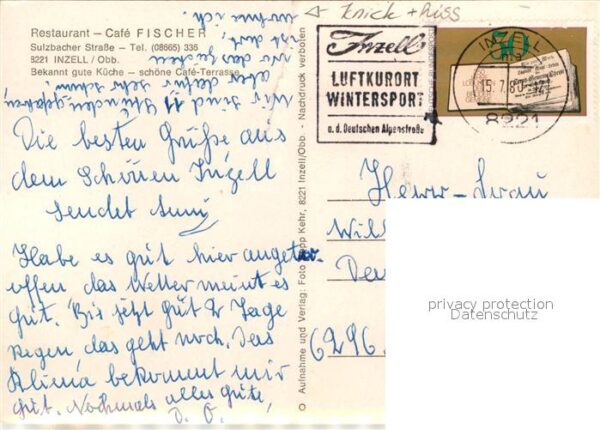 Restaurant – Café FISCHER
Sulzbacher Straße – Tel. (08665) 336
8221 INZELL / Obb.
Bekannt gute Küche – schöne Café-Terrasse
Wir sind 11 Stunden gefahren,
aber dafür sehr schön
wo das Zeichen
ist dort,
wohne ich.
Die besten Grüße aus
dem Schönen Inzell
sendet
Habe es gut hier anget
offen das Wetter meint es
gut. Bis jetzt gut 2 Tage
Regen das geht noch. Das
Klima bekommt mir
gut. Nochmals alles Gute,
Aufnahme und Verlag: Foto Sepp Kehr, 8221 Inzell/Obb. - Nachdruck verboten
Knick + Riss
Inzell
LUFTKURORT
WINTERSPORT
a. d. Deutschen Alpenstraße
INZELL
15.7.80-12
8221
50
Herr-Frau
Will
6296
privacy protection
Datenschutz